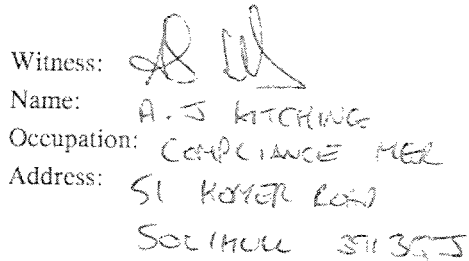 Witness:
Name: A. J KITCHING
Occupation: COMPLIANCE MGR
Address: 51 ROAD
SOLIHULL